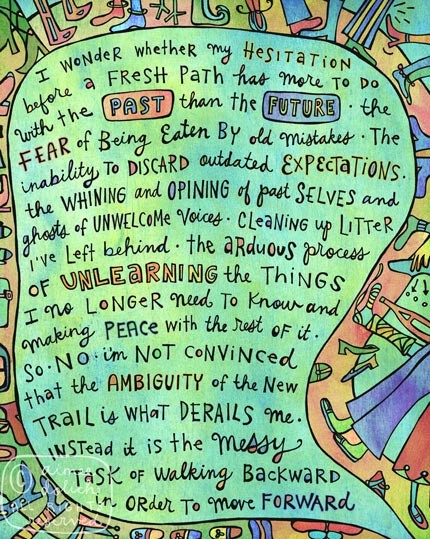 I WONDER WHETHER MY HESITATION
before a FRESH PATH has more TO DO
with the PAST than the FUTURE · the
FEAR of Being Eaten BY old mistakes · The
inability TO DISCARD outdated EXPECTATIONS.
the WHINING and OPINING of past SELVES and
ghosts of UNWELCOME Voices · CLEANING up LITTER
I've Left behind · the aRDuous process
OF UNLEARNING the THINGS
I no LONGER need TO Know and
making PEACE with the rest OF it.
SO · NO · i'm NOT CONVINCED
that the AMBIGUITY of the New
TRAIL is WHAT DERAILS me.
INSTEAD it is the messy
TASK OF walking BACKWARD
in ORDER TO move FORWARD
all rights
reserved